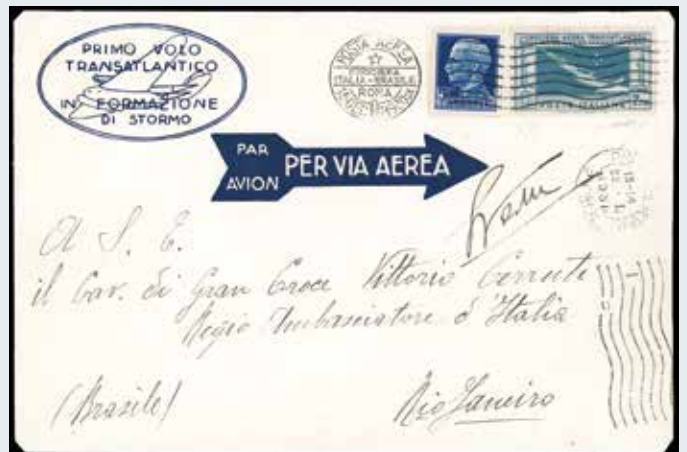 PRIMO VOLO
TRANSATLANTICO
IN FORMAZIONE
DI STORMO
POSTA AEREA
CROCIERA
ITALIA-BRASILE
ROMA
POSTE ITALIANE
PAR
AVION
PER VIA AEREA
A S. E.
il Cav. di Gran Croce Vittorio Cerruti
Regio Ambasciatore d'Italia
(Brasile)
Rio Janeiro